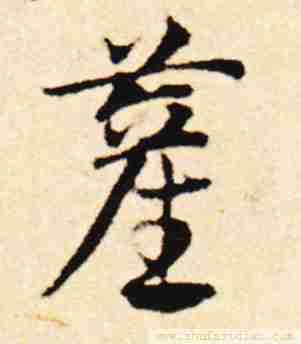 墓
www.shufazidian.com